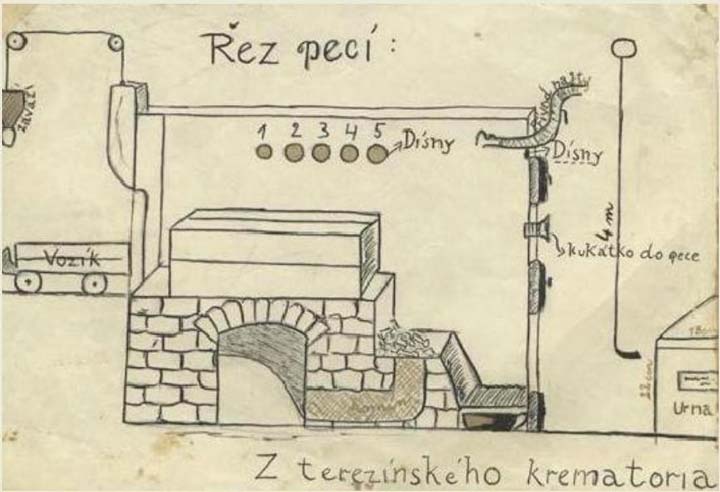 Řez pecí:
závaží
1 2 3 4 5
Dísny
Přívod nafty
Dísny
Vozík
4 m
kukátko do pece
18cm
22cm
Urna
Z terezínského krematoria